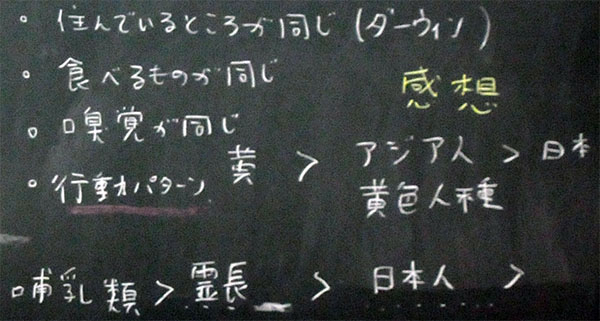 ・住んでいるところが同じ(ダーウィン)
・食べるものが同じ
感想
・嗅覚が同じ
> アジア人 > 日本
・行動パターン
黄色人種
哺乳類 > 霊長 > 日本人 >